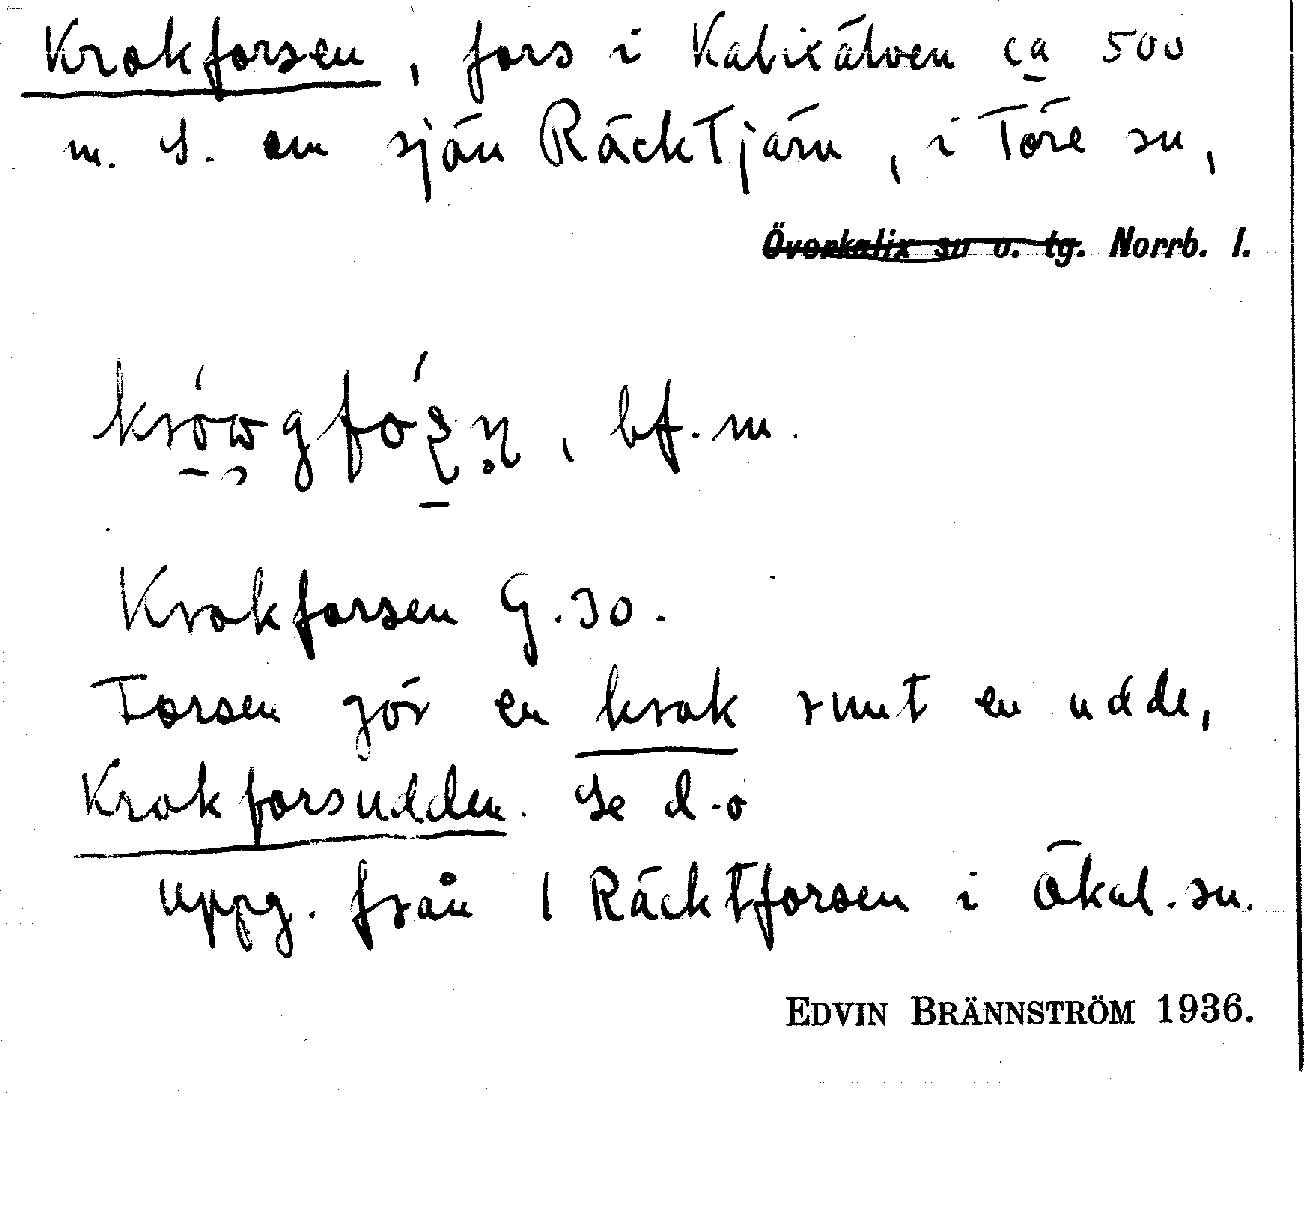 Krokforsen, fors i Kalixälven ca 500
m. S. om sjön Räcktjärn, i Töre sn,
Överkalix sn o. tg. Norrb. l.
bf. m.
Krokforsen G.30.
Forsen gör en krok runt en udde,
Krokforsudden. Se d.o
Uppg. från 1 Räcktforsen i Ökal. sn.
EDVIN BRÄNNSTRÖM 1936.